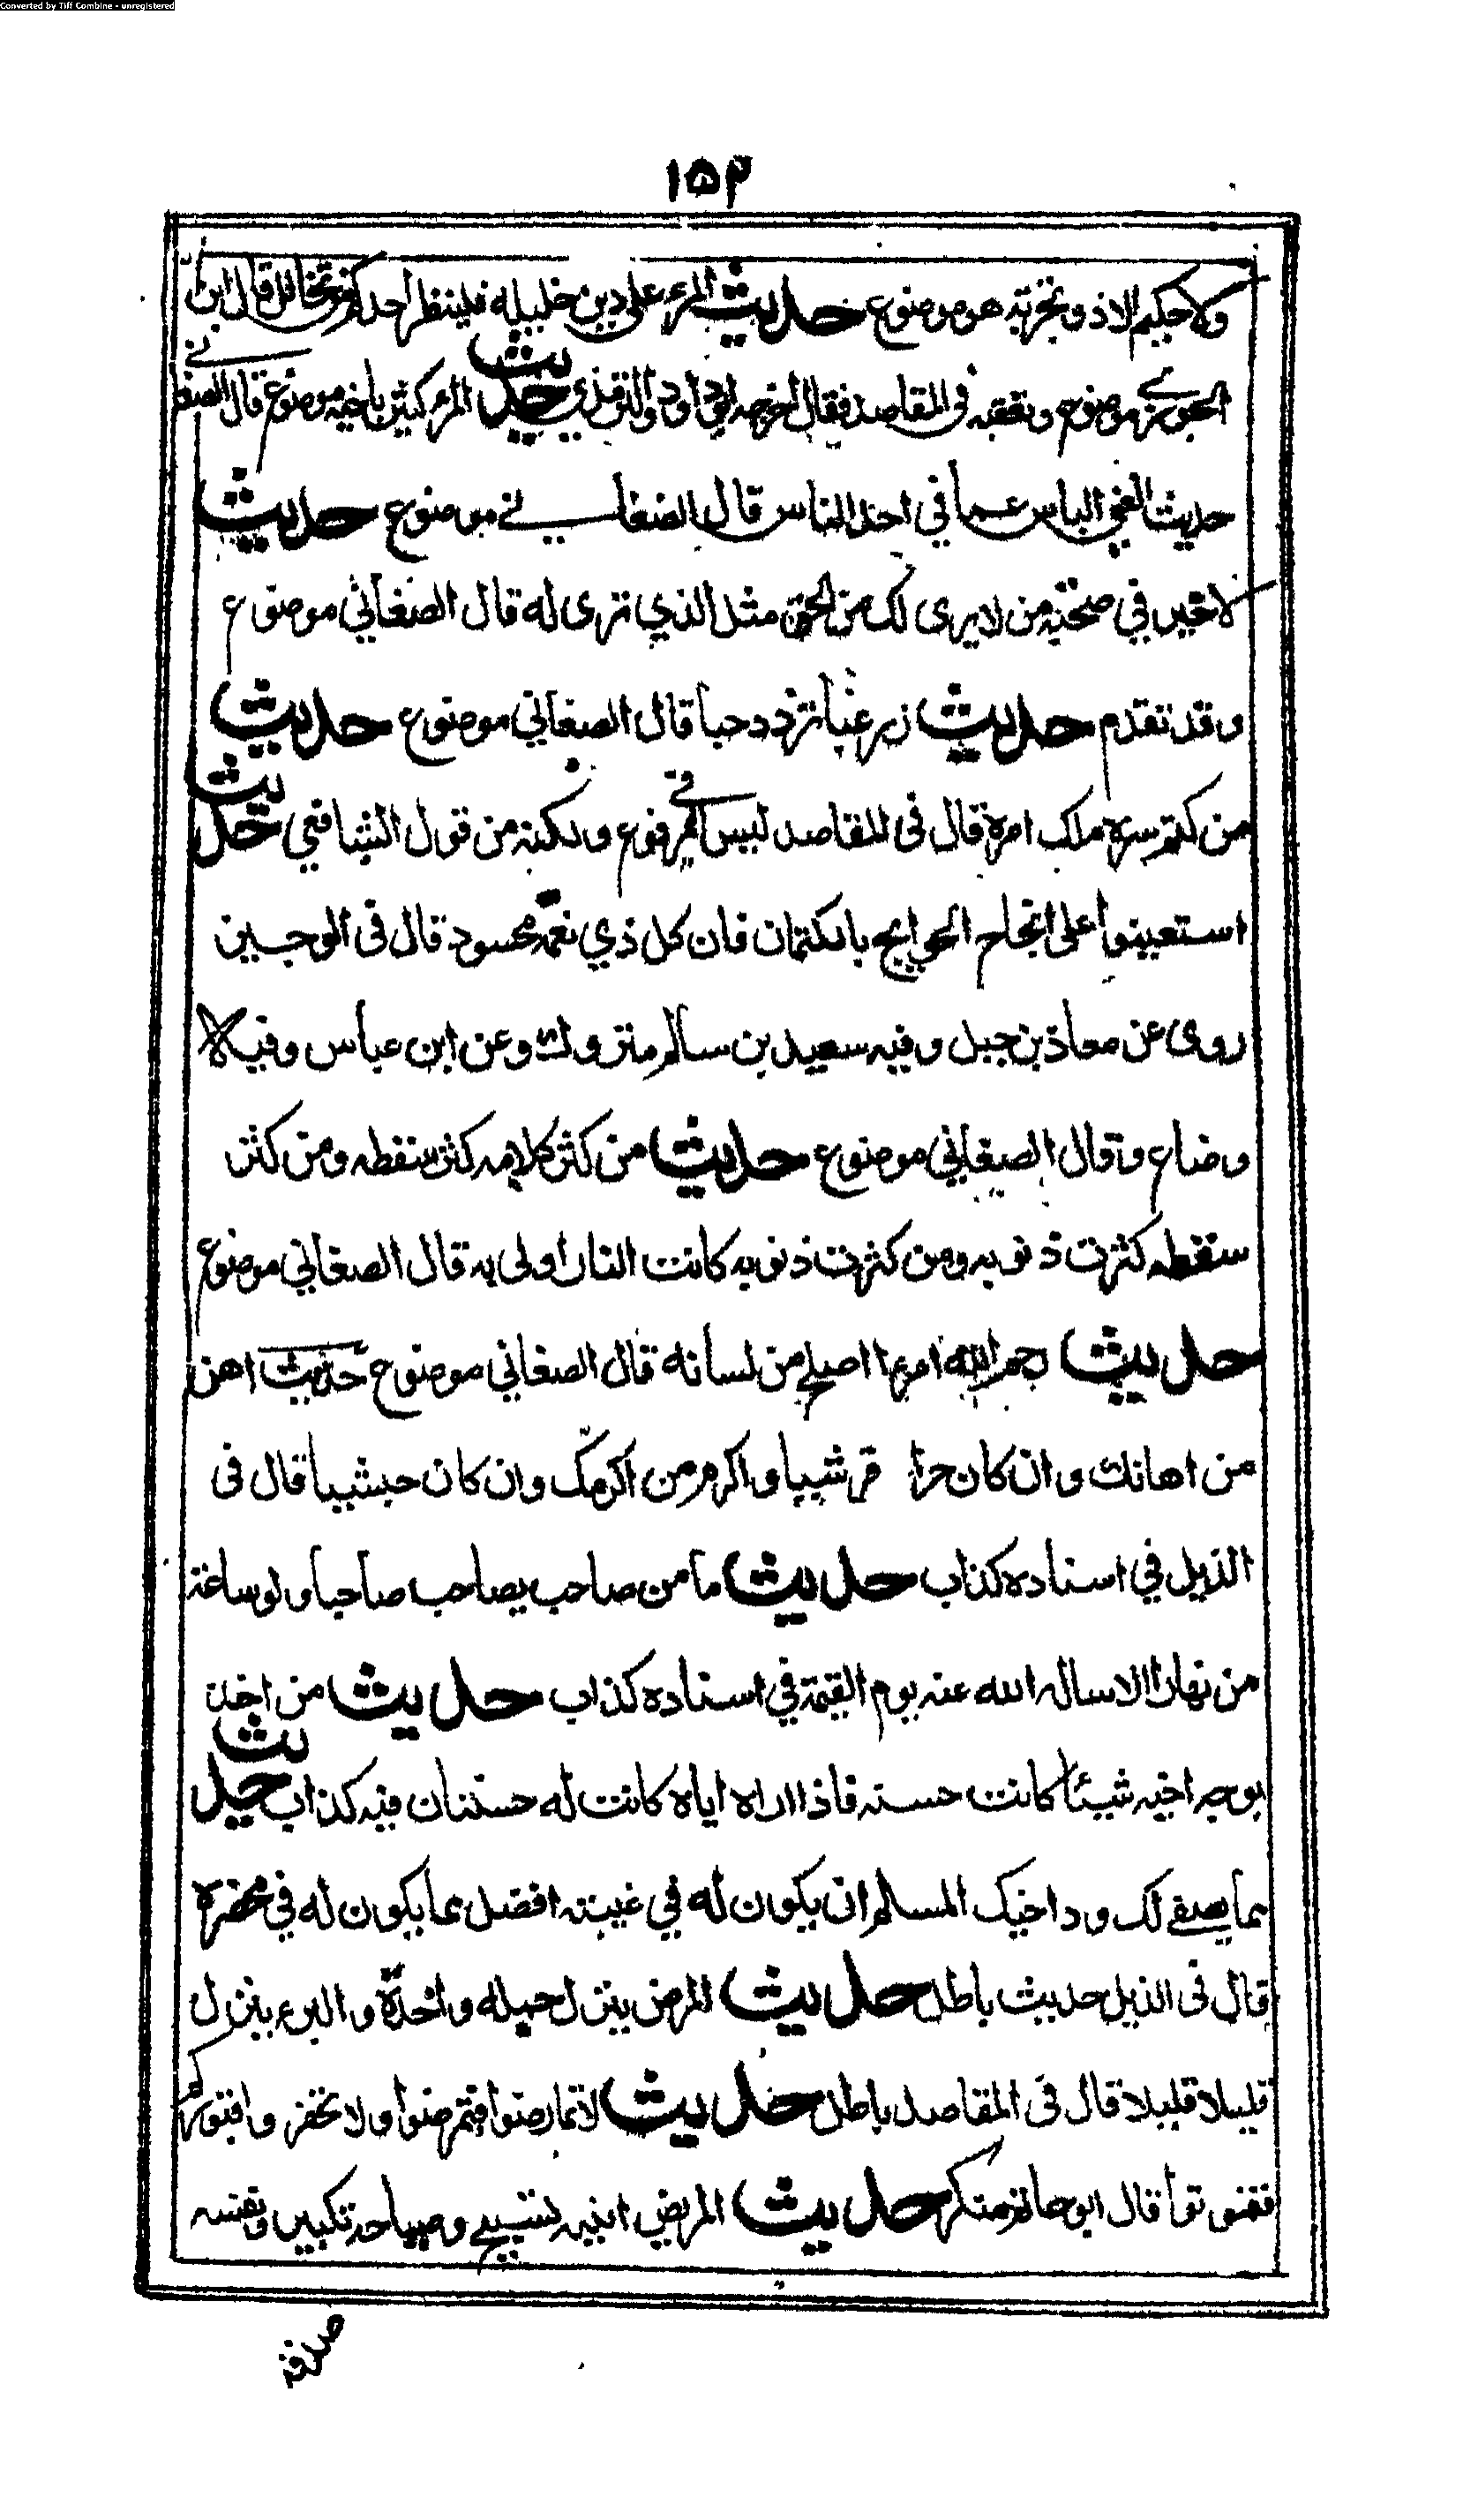 Converted by Tiff Combine - unregistered
١٥٣
ولا حكيم الا ذو تجربته هو موضوع حديث المرء على دين خليله فلينظر احدكم من يخالل قال ابن
الجوزي موضوع وتعقبه فى المقاصد فقال اخرجه ابو داود والترمذي حديث المرء كثير باخيه موضوع قال الصغاني
حديث الغنى الياس عما في احد الناس قال الصغاني موضوع حديث
لا خير في صحبة من لا يرى لك من الحق مثل الذي ترى له قال الصغاني موضوع
وقد تقدم حديث زر غبا تزدد حبا قال الصغاني موضوع حديث
من كتم سره ملك امره قال فى المقاصد ليس في المرفوع ولكنه من قول الشافعي حديث
استعينوا على انجاح الحوايج بالكتمان فان كل ذي نعمة محسود قال فى الوجيز
روى عن معاذ بن جبل وفيه سعيد بن سالم متروك وعن ابن عباس وفيه
وضاع وقال الصغاني موضوع حديث من كثر كلامه كثر سقطه ومن كثر
سقطه كثرت ذنوبه ومن كثرت ذنوبه كانت النار اولى به قال الصغاني موضوع
حديث رحم الله امرءا اصلح من لسانه قال الصغاني موضوع حديث اهن
من اهانك وان كان حرا قرشيا واكرم من اكرمك وان كان حبشيا قال فى
الذيل في اسناده كذاب حديث ما من صاحب يصاحب صاحبا ولو ساعة
من نهار الا ساله الله عنه يوم القيمة في اسناده كذاب حديث من اخذ
بوجه اخيه شيئا كانت حسنة فاذا اراه اياه كانت له حسنتان فيه كذاب حديث
مما يصفي لك ود اخيك المسلم ان يكون له في غيبته افضل مما يكون له في محضره
قال فى الذيل حديث باطل حديث المرض ينزل جملة واحدة والبرء ينزل
قليلا قليلا قال فى المقاصد باطل حديث لا تمارضوا فتمرضوا ولا تحفروا قبوركم
فتموتوا قال ابو حاتم منكر حديث المريض انينه تسبيح وصياحه تكبير ونفسه
صدقة